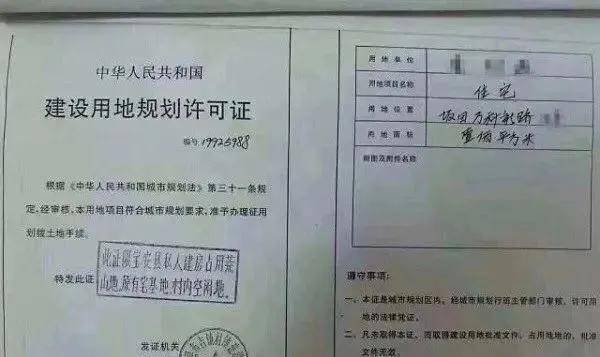 中华人民共和国
建设用地规划许可证
编号 19925988
根据《中华人民共和国城市规划法》第三十一条规
定,经审核,本用地项目符合城市规划要求,准予办理征用
划拨土地手续。
此证限宝安县私人建房占用荒
山地、原有宅基地、村内空闲地。
特发此证
发证机关
用地单位
用地项目名称 住宅
用地位置 坂田万科
用地面积 壹佰平方米
附图及附件名称
遵守事项:
一、本证是城市规划区内,经城市规划行政主管部门审核,许可用
地的法律凭证。
二、凡未取得本证,而取得建设用地批准文件、占用地的,批准
文件无效。